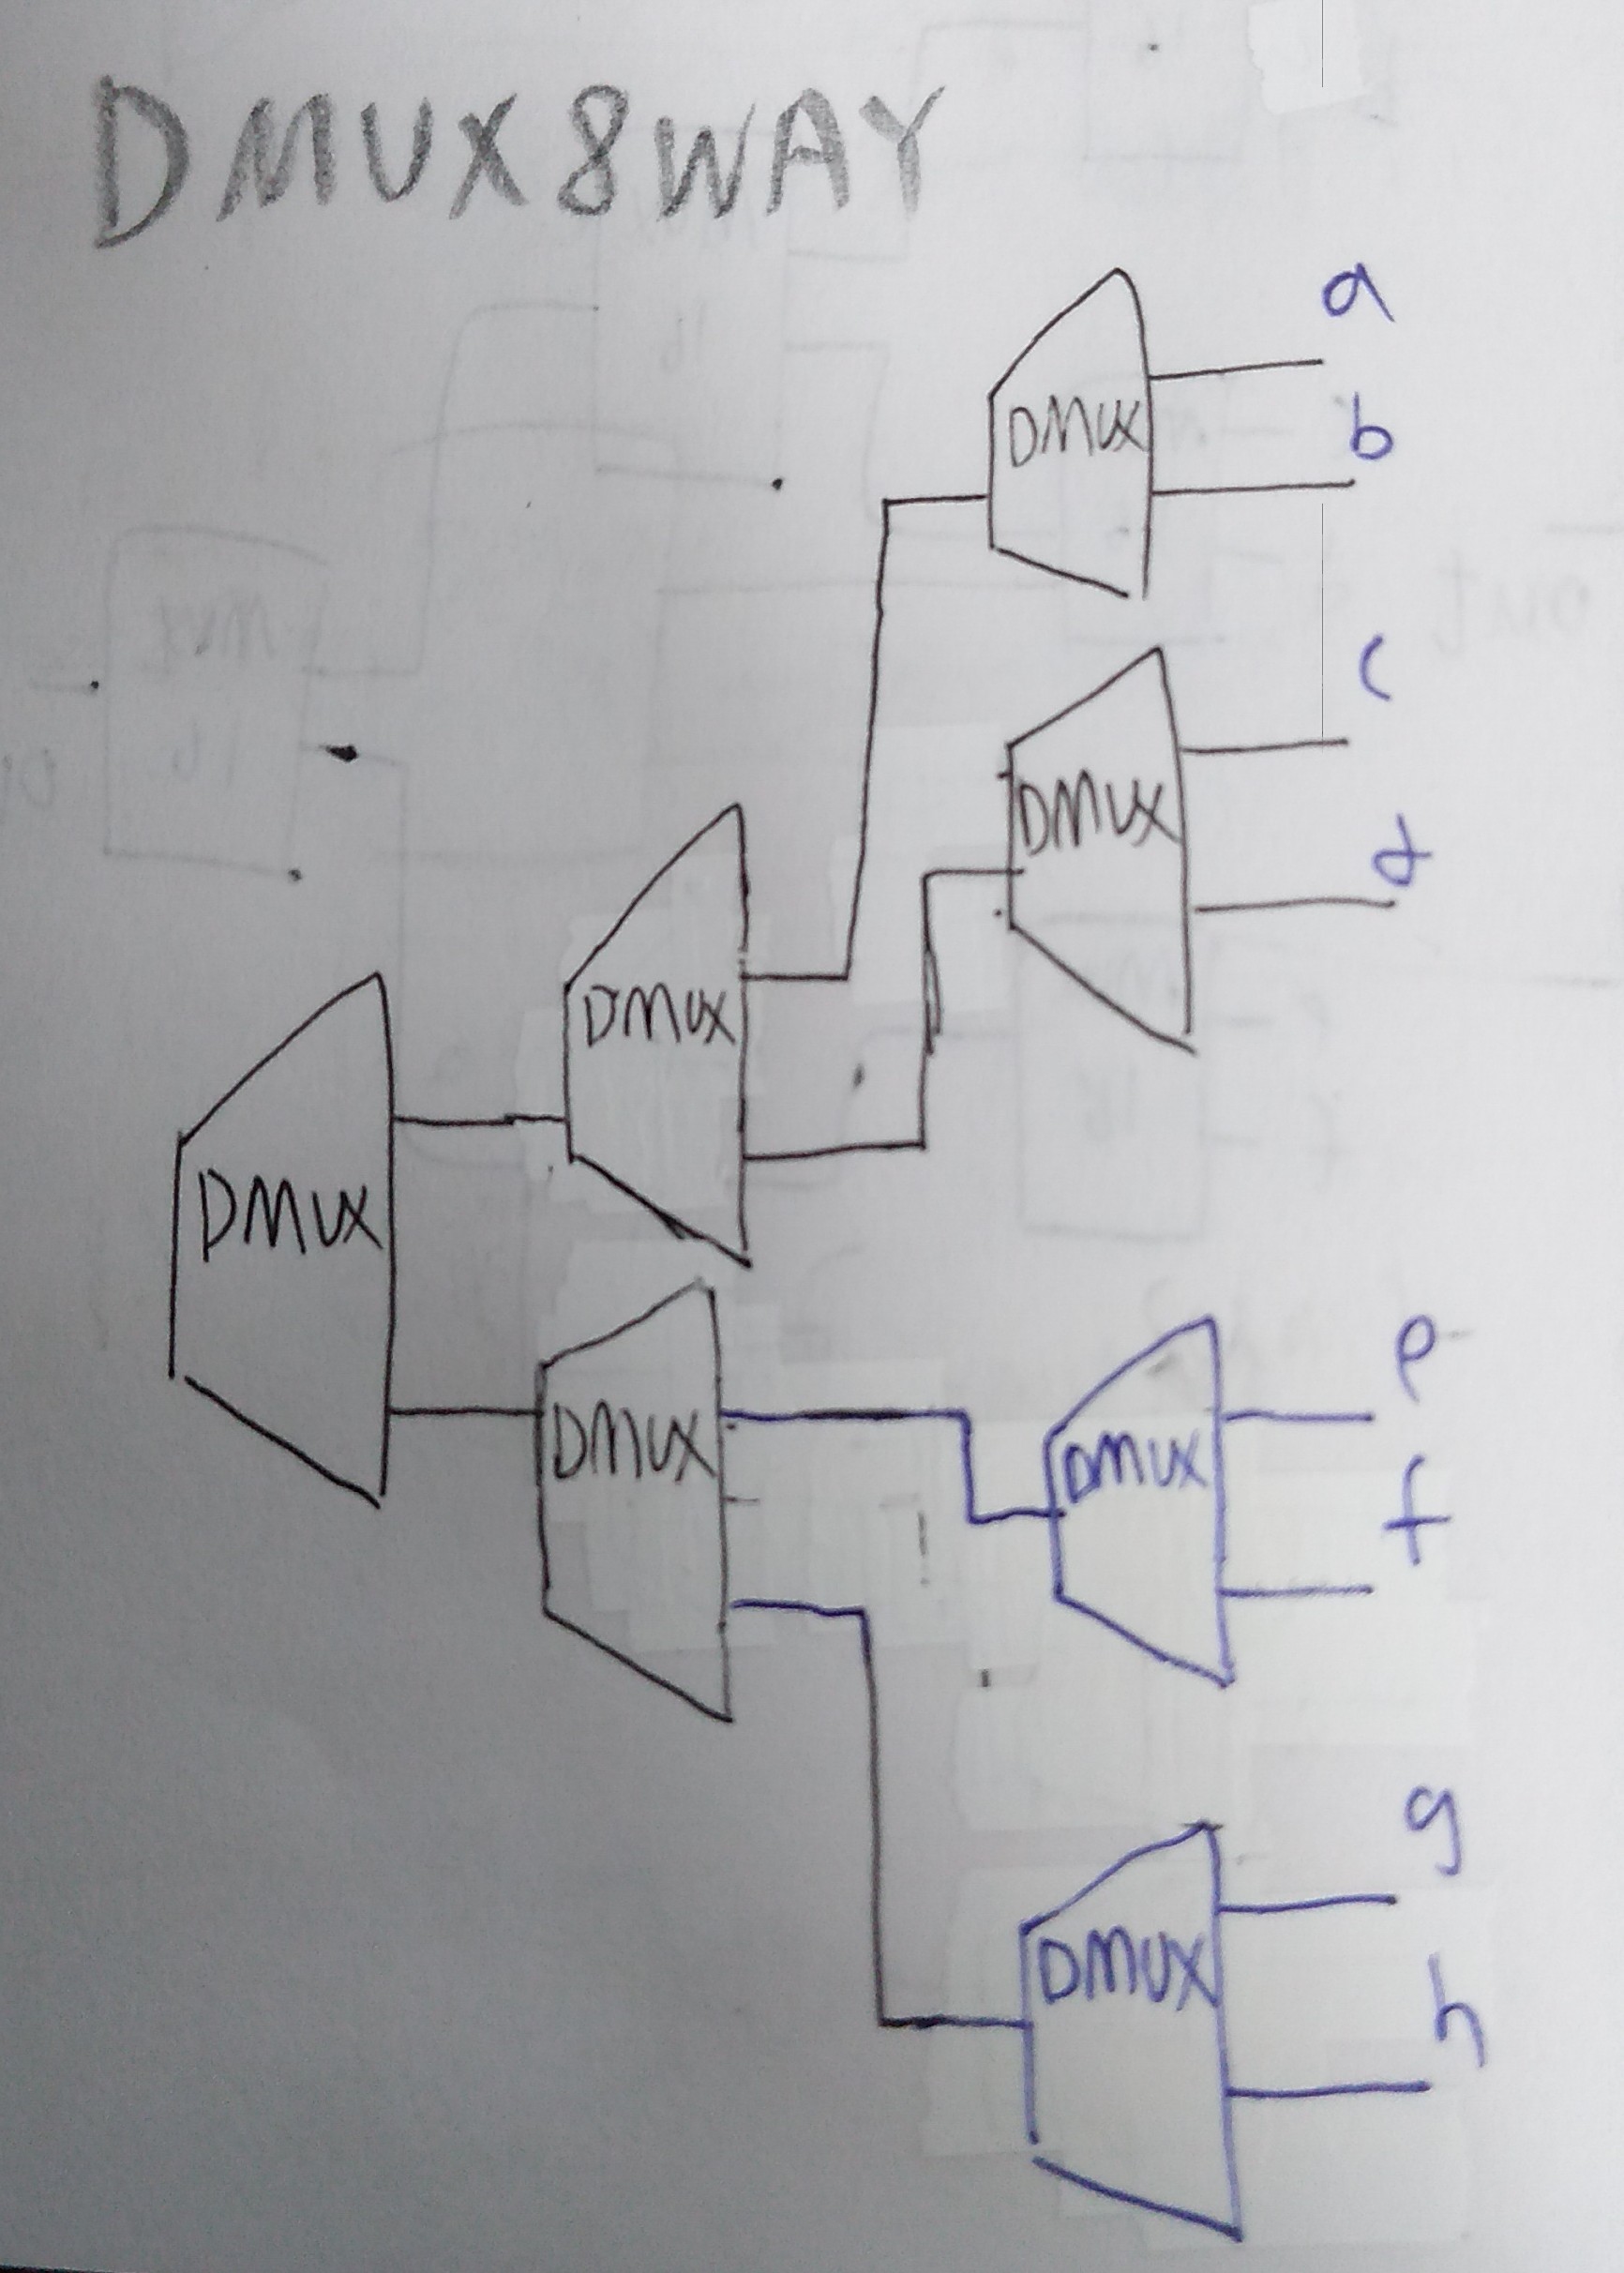 DMUX8WAY
a
DMUX
b
c
DMUX
d
DMUX
DMUX
e
DMUX
DMUX
f
g
DMUX
h